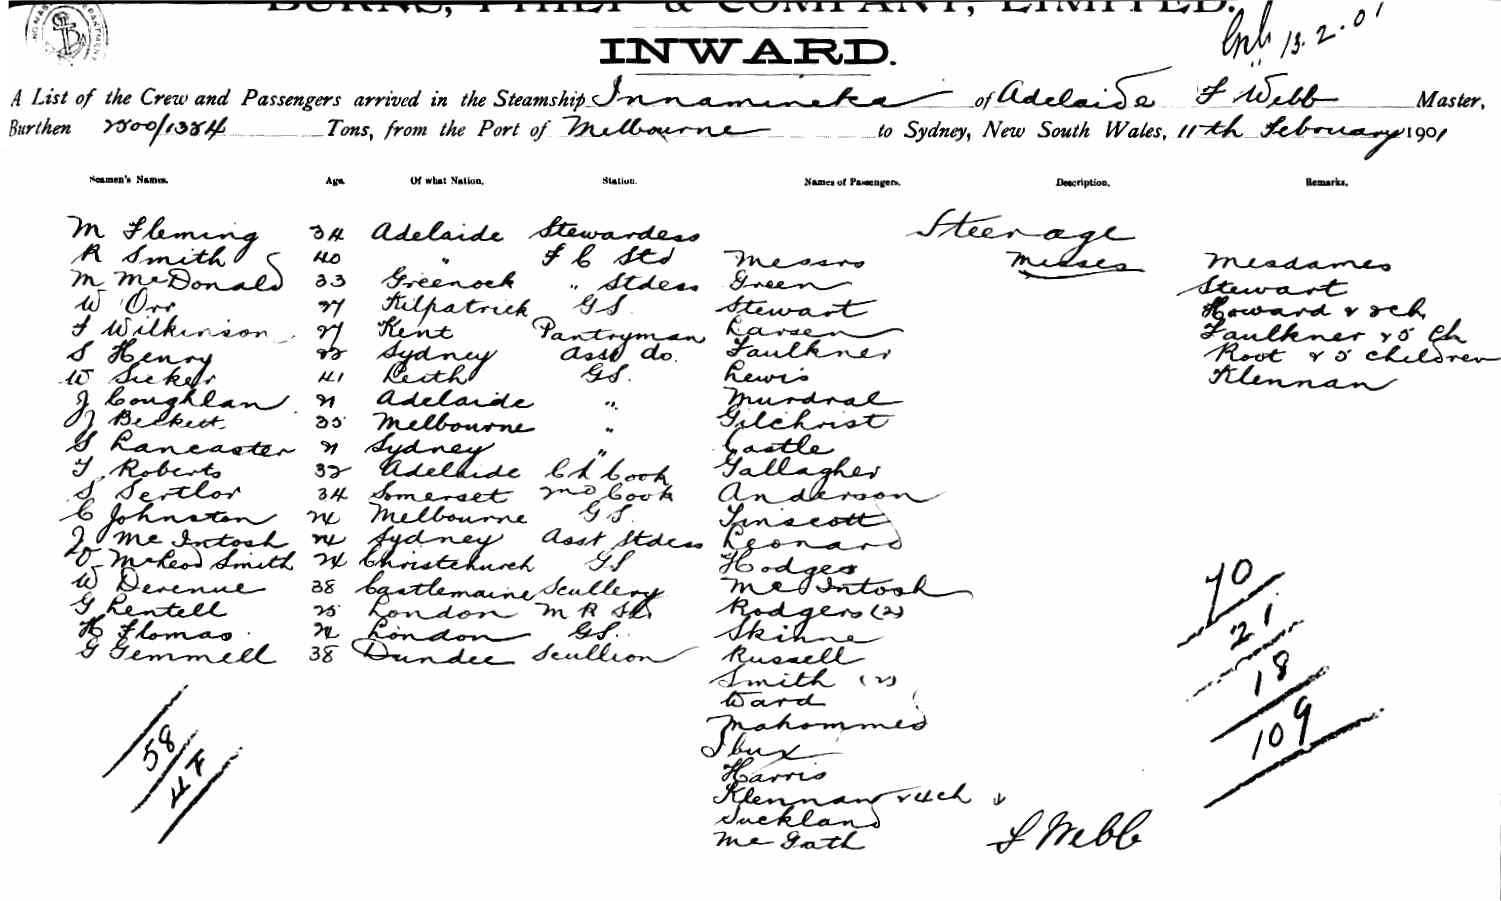 BURNS, PHILP & COMPANY, LIMITED.
13.2.01
INWARD.
A List of the Crew and Passengers arrived in the Steamship Innamincka of Adelaide F Webb Master,
Burthen 2500/1384 Tons, from the Port of Melbourne to Sydney, New South Wales, 11th February 1901
Seamen's Names. Age. Of what Nation. Station. Names of Passengers. Description. Remarks.
Steerage
M Fleming 34 Adelaide Stewardess
R Smith 40 " F C Std Messrs Misses Mesdames
M McDonald 33 Greenock " Stdess Green Stewart
W Orr 27 Kilpatrick GS Stewart Howard & 2ch
F Wilkinson 27 Kent Pantryman Larsen Faulkner & 5 Ch
S Henry 22 Sydney Asst do. Faulkner Root & 5 children
W Sicker 41 Leith GS. Lewis Klennan
J Coughlan 21 Adelaide " Murdral
J Beckett 35 Melbourne " Gilchrist
S Lancaster 21 Sydney " Castle
T Roberts 32 Adelaide Ch Cook Gallagher
S Sertlor 34 Somerset 2nd Cook Anderson
C Johnston 24 Melbourne GS. Linscott
J McIntosh 24 Sydney Asst Stdess Leonard
D McLeod Smith 24 Christchurch GS Hodges
W Derenue 38 Castlemaine Scullery McIntosh
G Rentell 25 London M R Std Rodgers (2)
H Flomas 24 London GS. Skinne
G Gemmell 38 Dundee Scullion Russell
Smith (2)
Ward
Mahommed
Ibux
Harris
Klennan & 4ch
Suckland
McGath
F Webb
58
4F
70
21
18
109